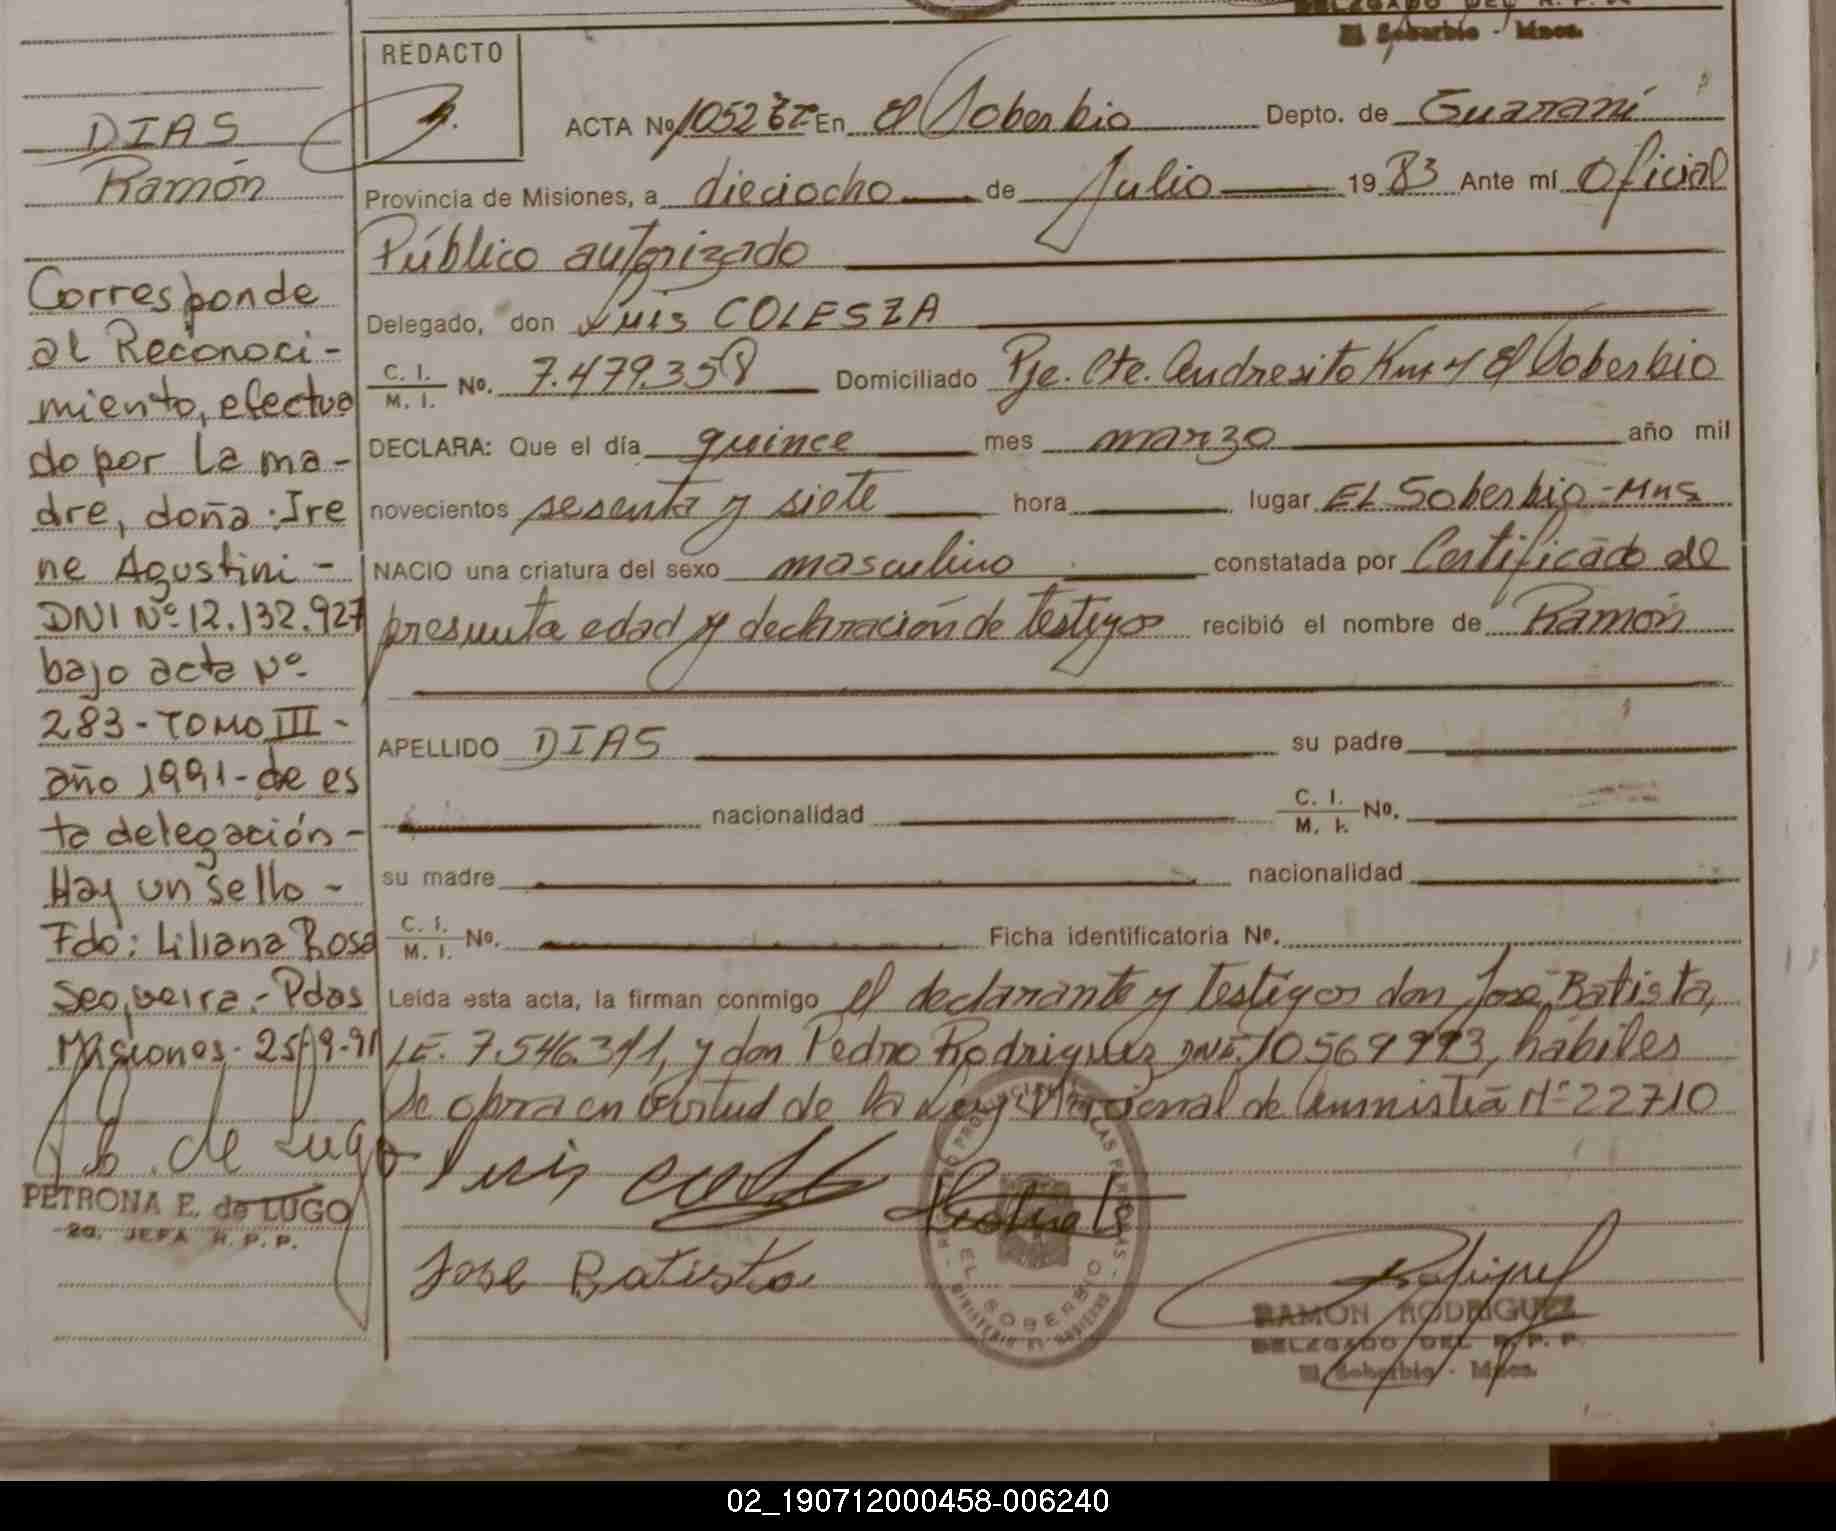 DELEGADO DEL R. P. P.
El Soberbio - Mnes.
REDACTO
DIAS
Ramón
Corresponde
al Reconoci-
miento, efectua
do por La ma-
dre, doña: Ire
ne Agustini -
DNI Nº 12.132.927
bajo acta Nº
283 - TOMO III -
año 1991 - de es
ta delegación -
Hay un sello -
Fdo: Liliana Rosa
Seqveira - Pdas
Misiones - 25-9-91
PETRONA E. de LUGO
2a. JEFA R. P. P.
ACTA Nº 1052 En El Soberbio Depto. de Guaraní
Provincia de Misiones, a dieciocho de Julio 19 83 Ante mí Oficial
Público autorizado
Delegado, don Luis COLESZA
C. I. / M. I. No. 7.479.358 Domiciliado Pje. Cte. Andresito Km 4 El Soberbio
DECLARA: Que el día quince mes marzo año mil
novecientos sesenta y siete hora lugar EL Soberbio - Mns
NACIO una criatura del sexo masculino constatada por Certificado de
presunta edad y declaración de testigos recibió el nombre de Ramón
APELLIDO DIAS su padre
nacionalidad C. I. / M. I. No.
su madre nacionalidad
C. I. / M. I. No. Ficha identificatoria No.
Leída esta acta, la firman conmigo el declarante y testigos don José Batista,
LE. 7.546.311, y don Pedro Rodriguez DNI. 10569993, hábiles
Se obra en virtud de la Ley Nacional de Amnistía Nº 22710
Luis
Jose Batista
EL SOBERBIO
RAMON RODRIGUEZ
DELEGADO DEL R. P. P.
El Soberbio - Mnes.
02_190712000458-006240